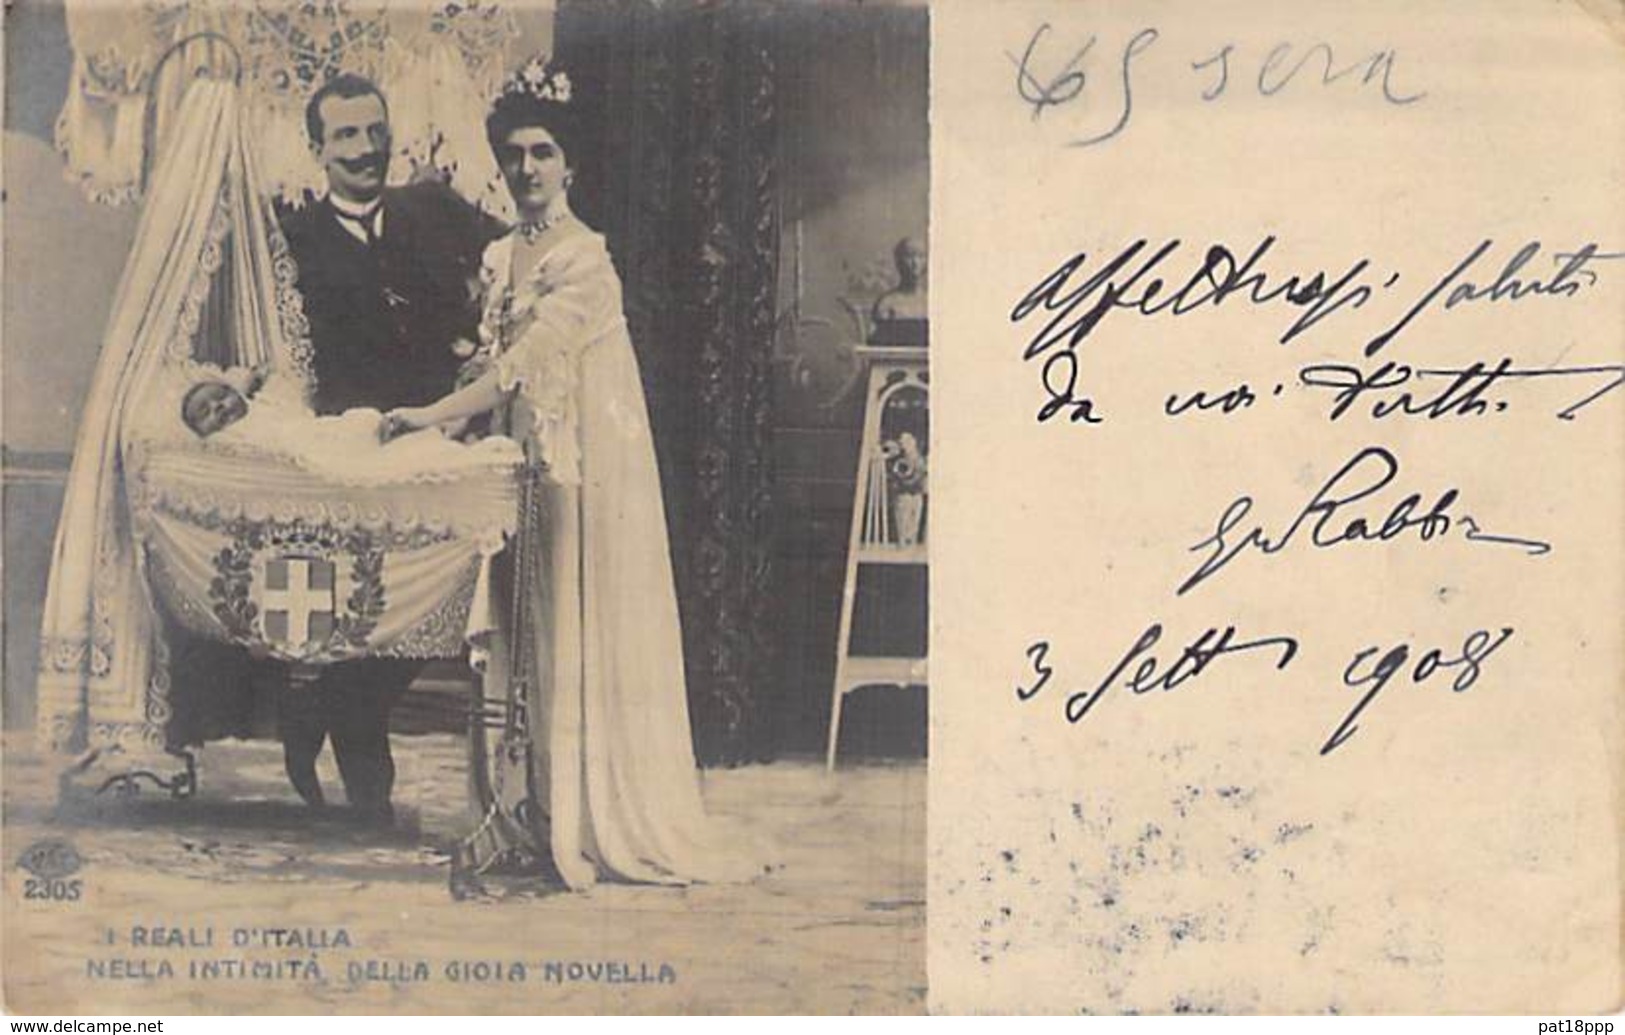 sera
Affettuosi saluti
da noi tutti
Rabbi
3 Sett 1908
2305
I REALI D'ITALIA
NELLA INTIMITÀ DELLA GIOIA NOVELLA
www.delcampe.net
pat18ppp